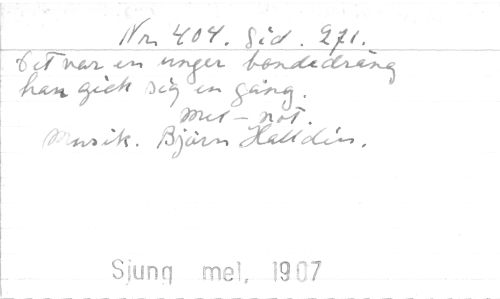 Nr. 404. Sid. 271.
Det var en unger bondedräng
han gick sig en gång.
Mel-not.
Musik. Björn Halldén.
Sjung mel, 1907